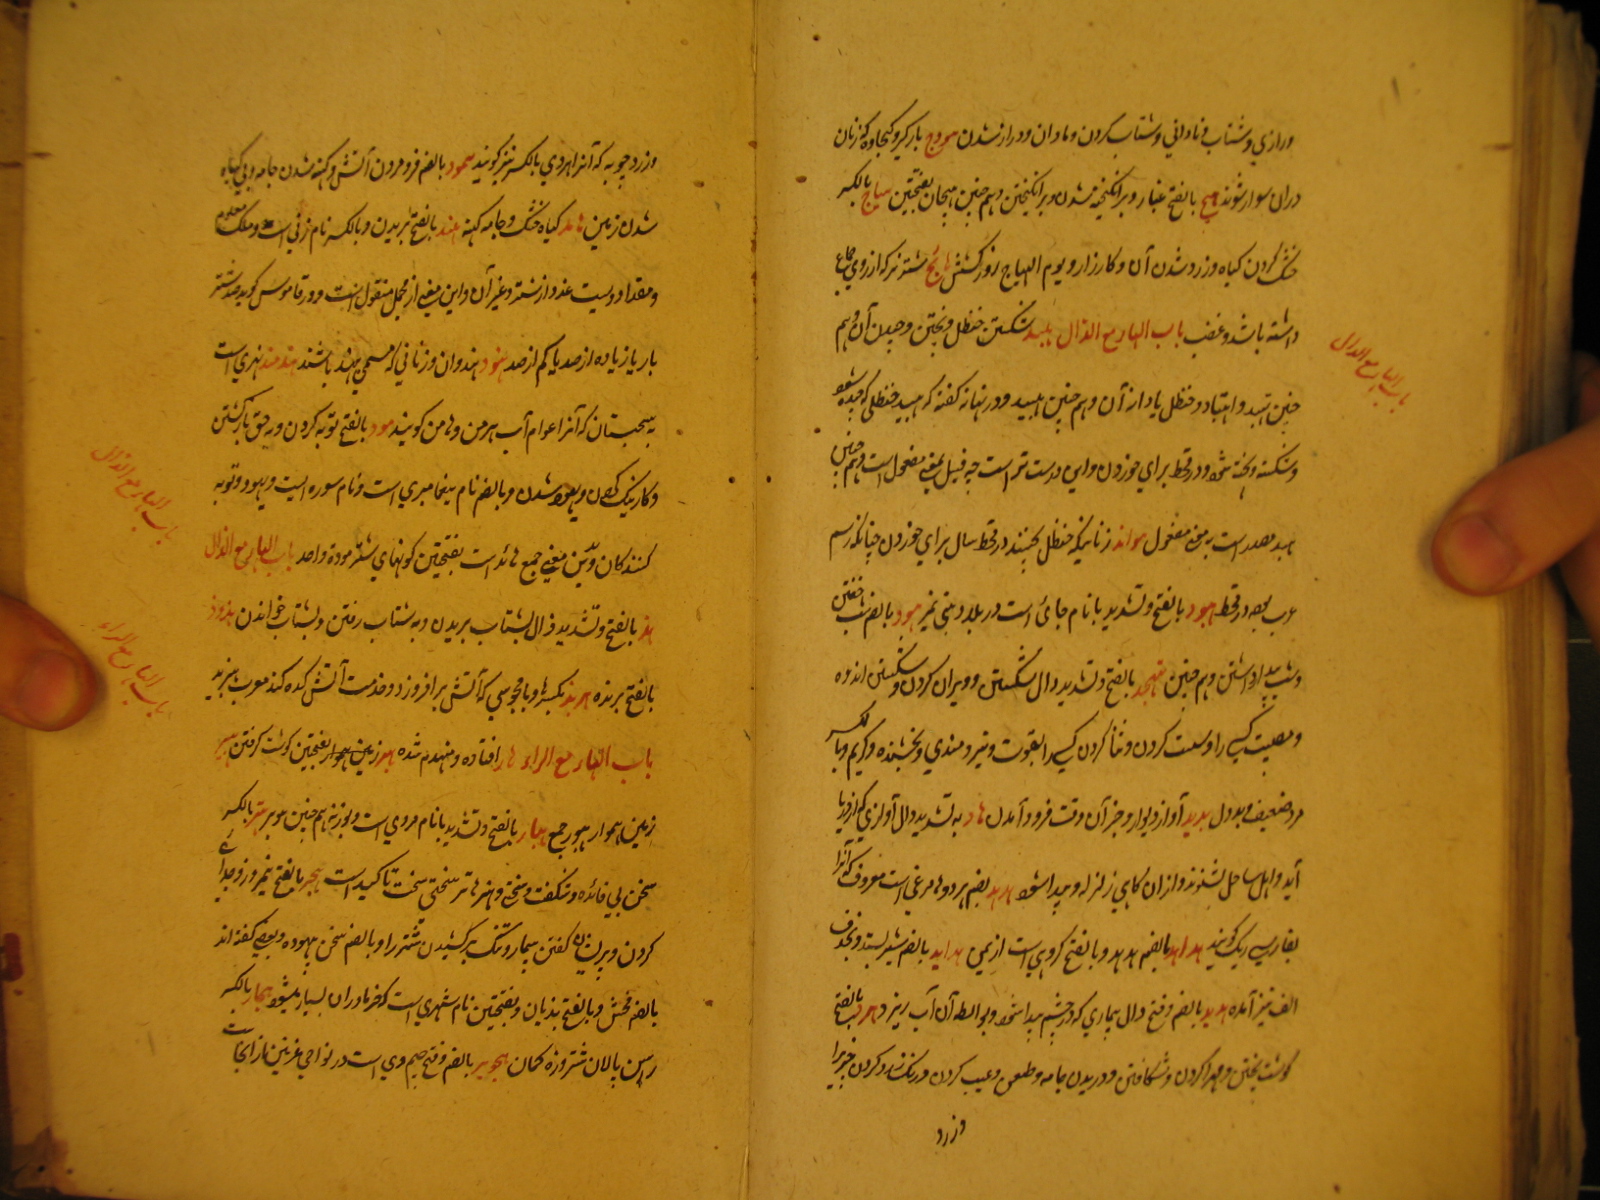 ودرازي وشتاب ونادانی وشتاب کردن ومادان ودراز شدن هودج بارکیر وکجاوه که زنان
دران سوار شوند هیج بالفتح غبار وبرانکیخته شدن وبرانکیختن وهم چنین هیجان بفتحتین هیاج بالکسر
خشک کردن کیاه وزرد شدن آن وکارزار ویوم الهیاج روز کشش هائج شتر نر که ارزوي جماع
داشته باشد وغضب باب الهاء مع الدال هبید شکستن حنظل وپختن وچیدن آن وهم
چنین تهبید واهتباد وحنظل یا دانه آن وهم چنین الهبید ودر نهایه کفته که هبید حنظلی که چیده شود
وشکسته وپخته شود در قحط براي خوردن واین درست تر است چه فعیل بمعنی مفعول است وهم چنین
هبد مصدر است به معنی مفعول هوابد زنانیکه حنظل بچینند در قحط سال براي خوردن چنانکه رسم
عرب بود در قحط هبود بالفتح وتشدید با نام جائی است در بلاد بنی نمیر هجود بالضم شب خفتن
وشب بیدار داشتن وهم چنین تهجد هد بالفتح وتشدید دال شکستن وویران کردن وشکستن اندوه
ومصیبت کسی را وسست کردن وثنا کردن کسی را بقوت ونیرومندي وبخشنده وکریم وبالکسر
مرد ضعیف وبددل هدید آواز دیوار وجز آن وقت فرود آمدن هاد به تشدید دال آوازي که از دریا
آید واهل ساحل بشنوند وازان کاهي زلزله پیدا شود هدهد بضم هر دو ها مرغی است معروف که آنرا
بفارسی پوپک کویند هداهد بالضم هدهد وبالفتح کروهي است از یمن هدابد بالضم شیر بسته وبحذف
الف نیز آمده هدبد بالضم وفتح دال بیماري که در چشم پیدا شود وبواسطه آن آب ریزد هرد بالفتح
کوشت پختن ومهرا کردن وشکافتن ودریدن جامه وطعن وعیب کردن ورنک زرد کردن چیزیرا
وزرد
باب الهاء مع الدال
وزرد چوبه که آنرا هردي بالکسر نیز کویند همود بالضم فرو مردن آتش وکهنه شدن جامه وبی کیاه
شدن زمین هامد کیاه خشک وجامه کهنه هند بالفتح بریدن وبالکسر نام زنی است وملک معلوم
ومقدار دویست عدد از شتر وغیر آن واین معنی از مجمل منقول است ودر قاموس کوید صد شتر
باز یا زیاده از صد یا کم از صد هنود هندوان وزنانی که مسمی بهند باشند هندمند نهري است
به سجستان که آنرا عوام آب هرمن وهامن کویند هود بالفتح توبه کردن وبه حق باز کشتن
وکار نیک کردن ویهود شدن وبالضم نام پیغامبري است ونام سوره ایست ویهود وتوبه
کنندکان وبدین معنی جمع هائد است بفتحتین کوهانهاي شتر هوده واحد باب الهاء مع الذال
هذ بالفتح وتشدید ذال بشتاب بریدن وبه شتاب رفتن وبشتاب خواندن هذوذ
بالفتح برنده هربذ بکسر ها وبا مجوسي که آتش برافروزد وخدمت آتش کده کند معرب هیربد
باب الهاء مع الراء هار افتاده ومنهدم شده هبر بفتحتین کوشت کرفتن هبیر
زمین هموار هبور جمع هبار بالفتح وتشدید با نام مردي است وبوزینه هم چنین هوبر هتر بالکسر
سخن بی فائده وشکفت وسختی وهتر هاتر سختی سخت تاکید است هجر بالفتح نیم روز وجدائی
کردن وپریشان کفتن بیمار وتنک برکشیدن شتر را وبالضم سخن بیهوده وبعضی کفته اند
بالضم فحش وبالفتح هذیان وبفتحتین نام شهري است که خرما دران بسیار میشود هجار بالکسر
رسن پالان شتر وزه کمان هجویر بالضم وفتح جیم دهي است در نواحي غزنین از انجاست
باب الهاء مع الذال
باب الهاء مع الراء